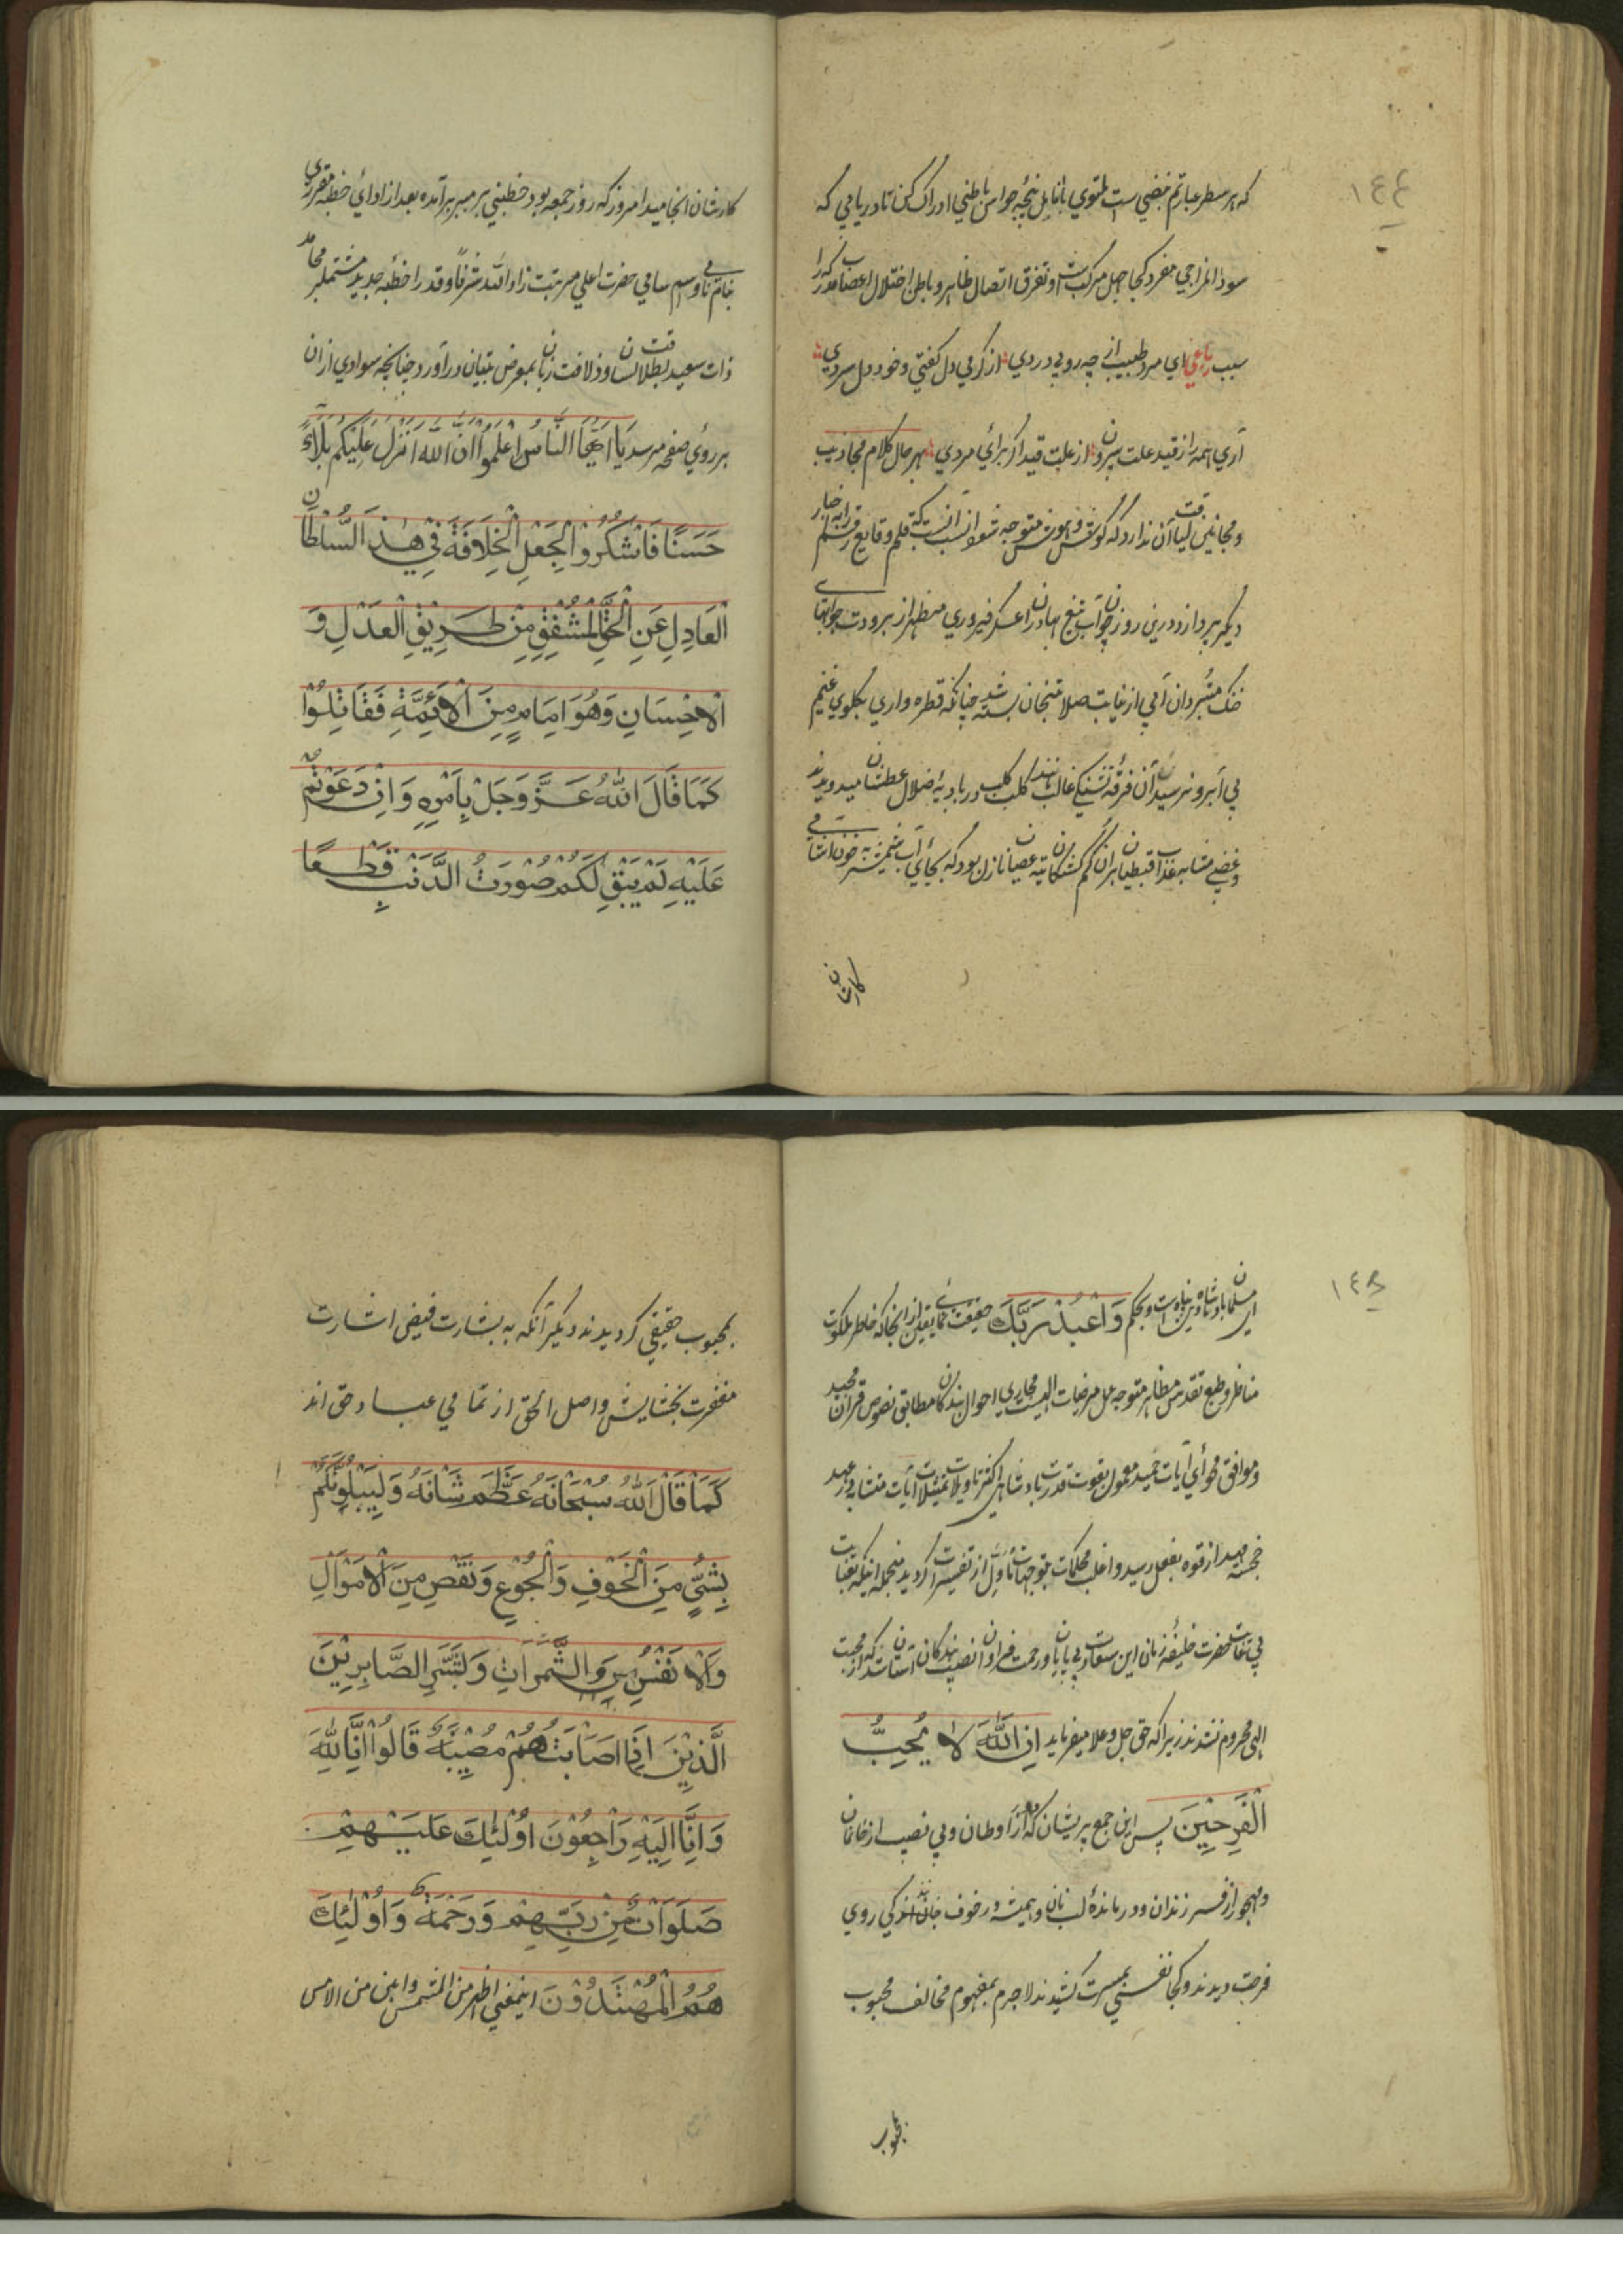 ١٤٤
که هر سطر عبارتم نبضی ست ملتوی بانامل پنجه حواس باطنی ادراک کن تا دریابی که
سوء المزاجی مفرد کجا جهل مرکبست و تفرق اتصال ظاهر و باطن اختلال اعضا مدرکه را
سبب رباعی ای مرد طبیب از چه روبی دردی از گرمی دل گفتی و خود دل سردی
آری همه را ز قید علت بیرون از علت قید اگر برائی مردی بهر حال کلام مجاذیب
و مجانین لیاقت آن ندارد که گوش و هوش متوجه شود انسب آنست که قلم وقایع رقم را بنهضار
دیگر پردازد درین روز چون آب تیغ بهادران عسکر فیروزی مظهر از برودت جوابهای
خنک مشیردان آبی از غایت صلابت یخان بسته شد چنانکه قطره واری بگلوی غنیم
بی آبرو نرسید آن فرقه تشنگی غالب مانند کلب کلب در بادیه ضلال عطشان میدویدند
و غضبی مشابه عذاب قبطیان بران گم گشتگان تیه عصیان نازل بود که بجای آب شمشیر به خون آشامی
کارشان
کارشان انجامید امروز که روز جمعه بود خطیبی بر ممبر برآمده بعد از ادای خطبه مقرری
بنام نامی و اسم سامی حضرت اعلی مرتبت زاد الله شرفا و قدرا خطبه جدید مشتمل بر محامد
ذات سعید بطلاقت لسان و ذلاقت زبان بمعرض تبیان درآورد چنانچه سوادی ازان
بر روی صفحه میرسد یَا اَیُّهَا النَّاسُ اعْلَمُوْا اَنَّ اللهَ اَنْزَلَ عَلَیْکُمْ بَلَاءً
حَسَنًا فَاشْکُرُوْا لِجَعْلِ الْخِلَافَةِ فِیْ هٰذَا السُّلْطَانِ
الْعَادِلِ عَنِ الْحَقِّ الْمُشْفِقِ مِنْ طَرِیْقِ الْعَدْلِ وَ
الْاِحْسَانِ وَهُوَ اِمَامٌ مِنَ الْاَئِمَّةِ فَقَاتِلُوْا
کَمَا قَالَ اللهُ عَزَّ وَجَلَّ بِاَمْرِهٖ وَاِنْ دَعَوْتُمْ
عَلَیْهِ لَمْ یَبْقِ لَکُمْ صُوْرَتُ الذَّنْبِ قَطْعًا
١٤٥
این مسلمان بادشاه دین پناه است و بحکم وَاعْبُدْ رَبَّکَ حقیقت نمای یقین از آنجا که خاطر ملکوت
مناظر و طبع تقدس مظاهر متوجه عمل مرضیات الهیست مجاری احوال بندگان مطابق نصوص قرآن مجید
و موافق فحوای آیات حمید معمول بقوت قدرت بادشاهی اکثر تاویلات تمثیلات آیات متشابه در عهد
خجسته مهد از قوه بفعل رسید و اغلب محکمات بتوجهات اول از تفسیرات گردید منجمله اینکه بعنایت
بی غایت حضرت خلیفه زمانی این سعادت بی پایان و رحمت فراوان نصیب بندگان آستان شد که از محبت
الهی محروم نشدند زیرا که حق جل و علا میفرماید اِنَّ اللهَ لَا یُحِبُّ
الْفَرِحِیْنَ پس این جمع پریشان که دور از اوطان و بی نصیب از خانمان
و مهجور از فرزندان و درمانده لب نان و همیشه در خوف جان‌اند کی روی
فرحت دیدند و کجا نفسی بمسرت کشیدند لاجرم بمفهوم مخالف محبوب
محبوب
محبوب حقیقی گردیدند دیگر آنکه به بشارت فیض اشارت
مغفرت بخشایش و اصل الحق از تمامی عباد حق اند
کَمَا قَالَ اللهُ سُبْحَانَهُ عَظُمَ شَانُهُ وَلِیَبْلُوَنَّکُمْ
بِشَیْءٍ مِنَ الْخَوْفِ وَالْجُوْعِ وَنَقْصٍ مِنَ الْاَمْوَالِ
وَالْاَنْفُسِ وَالثَّمَرَاتِ وَبَشِّرِ الصَّابِرِیْنَ
الَّذِیْنَ اِذَا اَصَابَتْهُمْ مُصِیْبَةٌ قَالُوْا اِنَّا لِلّٰهِ
وَاِنَّا اِلَیْهِ رَاجِعُوْنَ اُوْلٰئِکَ عَلَیْهِمْ
صَلَوَاتٌ مِنْ رَبِّهِمْ وَرَحْمَةٌ وَاُوْلٰئِکَ
هُمُ الْمُهْتَدُوْنَ اینمعنی اظهر من الشمس و ابین من الامس